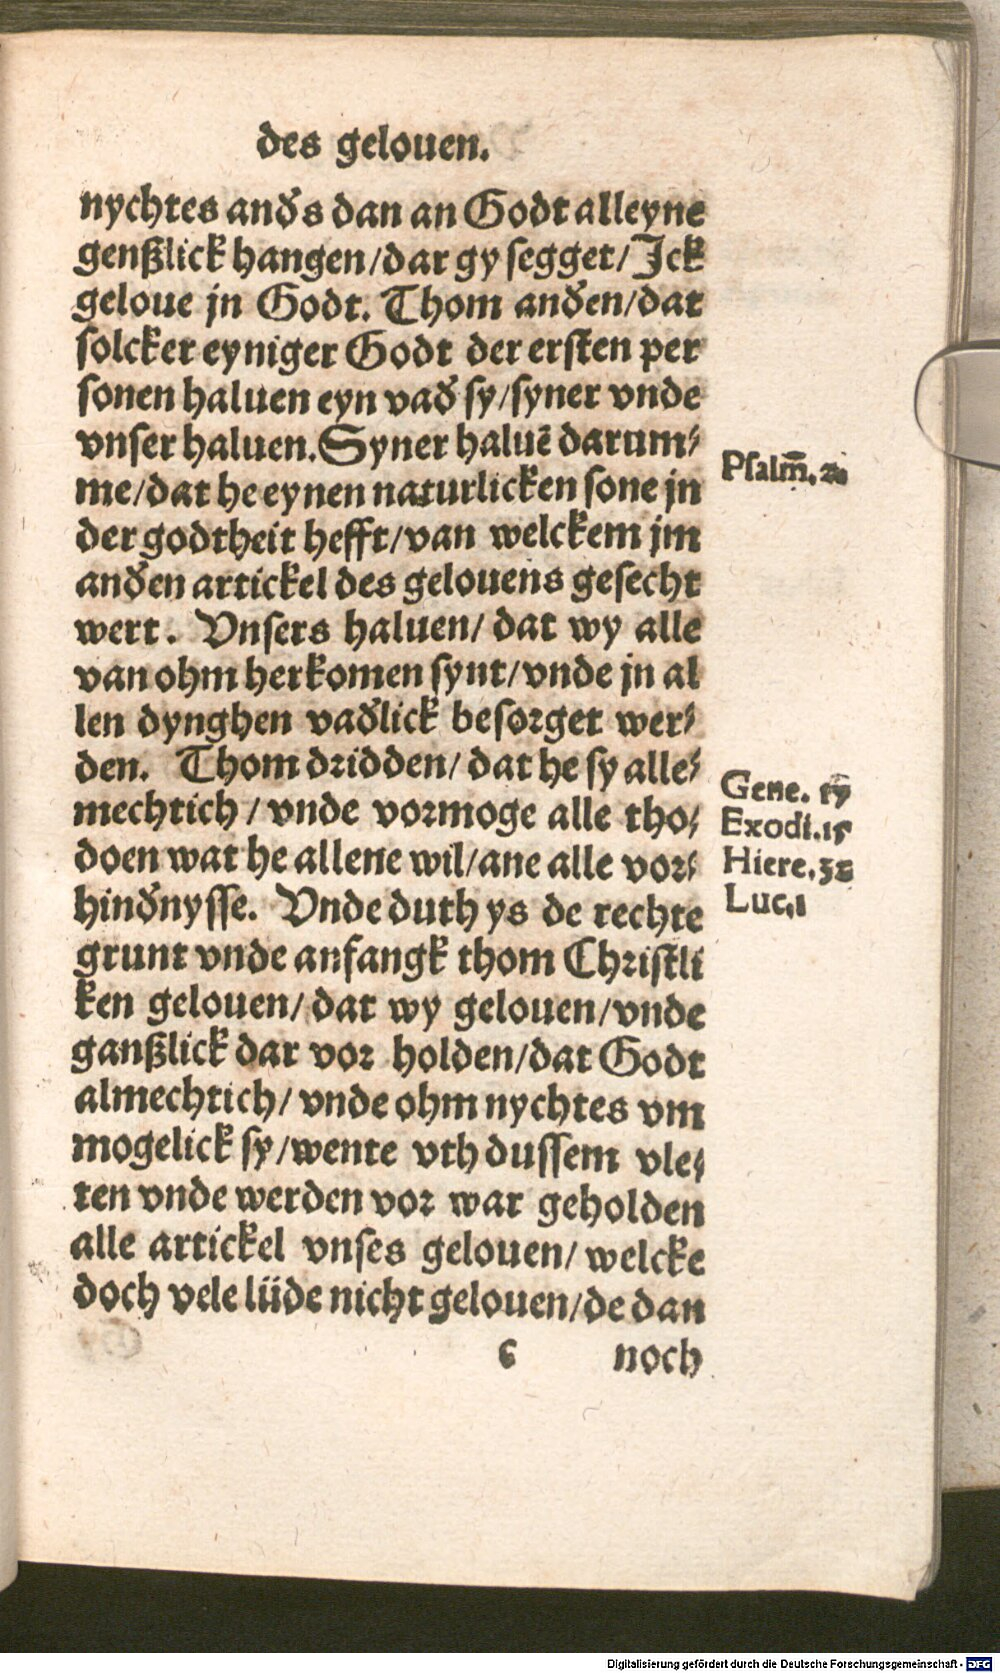 des gelouen.
nychtes and̆s dan an Godt alleyne
genßlick hangen/dar gy segget/ Jck
geloue jn Godt. Thom and̆en/dat
solcker eyniger Godt der ersten per
sonen haluen eyn vad̆ sy/syner vnde
vnser haluen. Syner haluē darum⸗
me/dat he eynen naturlicken sone jn
der godtheit hefft/van welckem jm
and̆en artickel des gelouens gesecht
wert. Vnsers haluen/ dat wy alle
van ohm herkomen synt/vnde jn al
len dynghen vad̆lick besorget wer⸗
den. Thom dridden/ dat he sy alle⸗
mechtich / vnde vormoge alle tho⸗
doen wat he allene wil/ane alle vor⸗
hind̆nysse. Vnde duth ys de rechte
grunt vnde anfangk thom Christli
ken gelouen/ dat wy gelouen/vnde
ganßlick dar vor holden/dat Godt
almechtich/ vnde ohm nychtes vm
mogelick sy/wente vth dussem vle⸗
ten vnde werden vor war geholden
alle artickel vnses gelouen/ welcke
doch vele lüde nicht gelouen/de dan
6 noch
Psalm̄. 2
Gene.
Exodi.15
Hiere.32
Luc.1
Digitalisierung gefördert durch die Deutsche Forschungsgemeinschaft - DFG